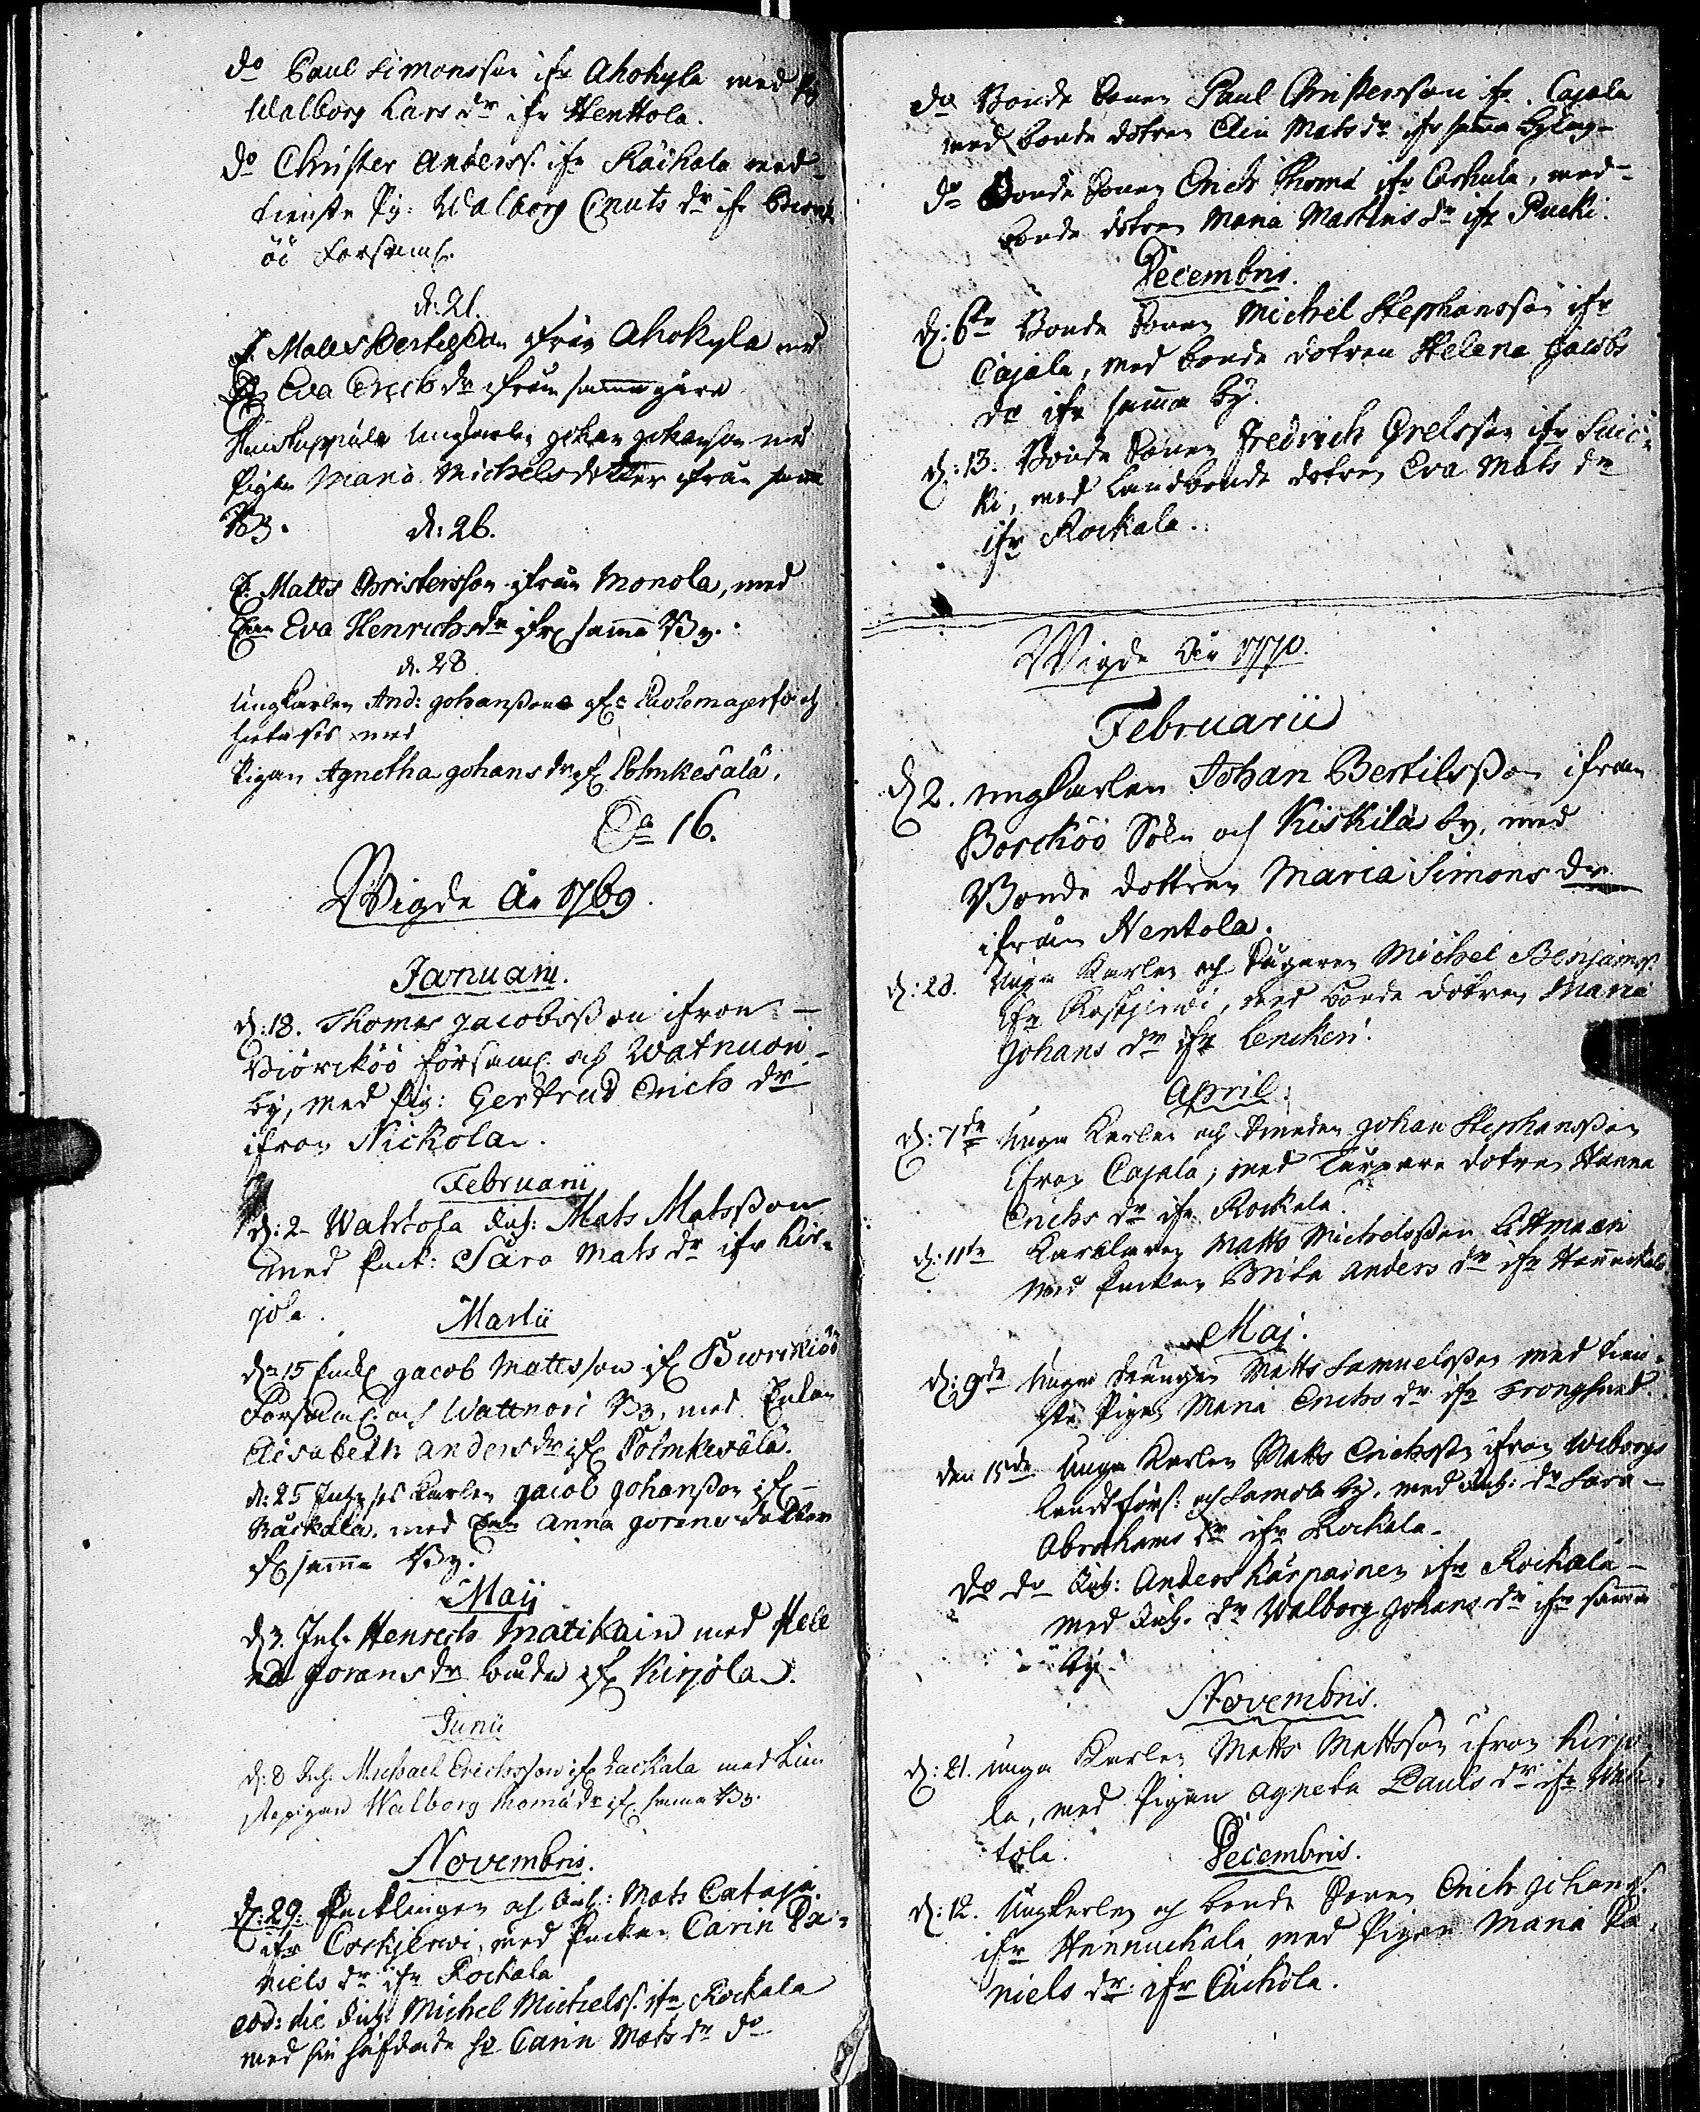 do Paul Simonsson ifr Ahokyla med Pig
Walborg Lars dr ifr Henttola.
do Christer Anderss. ifr Räikala med
tienste Pig: Walborg Cnuts dr ifr
öö Forsaml.
d: 21.
Matts Bertilsson ifrån Ahokyla med
Eva Erichs dr ifrån samma
ungkarlen Johan Johanson med
Pigan Maria Michelsdotter ifrån samma
By. d: 26.
E. Matts Christersson ifrån Monola, med
Enn Eva Henrichsdr ifr samma By.
d. 28
Ungkarlen And: Johansson ifr
med
Pigan Agnetha Johans dr ifr Tolmkesälä.
Sa 16.
Wigde År 1769.
Januarii.
d: 18. Thomas Jacobsson ifron
Biörcköö församl. och Watnuori
by, med Pig: Gertrud Erich dr
ifron Nickola.
Februarii
d: 2 Wahtola Inh: Mats Matsson
med Enck: Sara Mats dr ifr Kir-
jola. Martii
d. 15 Enckl Jacob Mattsson ifr Biorckiöö
Forsaml. och Wattnori By, med Enkan
Elisabeth Anders dr ifr Tolmkesälä.
d: 25 Inhyses Karlen Jacob Johansson ifr
Räckälä, med Enn Anna Jorans dotter
ifr samma By.
Maij
d 3. Inh. Henrich Matikain med Hele
na Jorans dr båda ifr Kirjola.
Junii
d: 8 Inh. Michael Erichsson ifr Rackala med tien
stepigan Walborg Thoma dr ifr samma By.
Novembris.
d: 29. Encklingen och Inh: Mats Cataja
ifr Coskjerwi, med Enckan Carin Da-
niels dr ifr Rockala
eod: die Inh: Michel Michelss. ifr Rockala
med sin häfdade Carin Mats dr do
do Bonde Sonen Paul Christersson ifr. Cajala
med bonde dotren Elin Mats dr ifr samma by
do Bonde Sonen Erich Thoma ifr Cackula, med
bonde dotren Maria Martins dr ifr Pucki.
Decembris.
d: 6te Bonde Sonen Michel Stephansson ifr
Cajala, med bonde dotren Helena Jacobs
dr ifr samma by.
d: 13. Bonde Sonen Fredrich Grelsson ifr Suic-
ki, med Landbonde dotren Eva Mats dr
ifr Rockala.
Wigde År 1770.
Februarii
d 2. ungkarlen Johan Bertilsson ifrån
Borcköö Sokn och Kiskilä by, med
Bonde dottren Maria Simons dr
ifrån Hentola.
d: 28. Unga Karlen och Michel Benjamss.
ifr, med bonde dotren Maria
Johans dr ifr Lenckeri.
April.
d: 7de Unga Karlen och Smeden Johan Stephansson
ifron Cajala, med Torpare dotren Hanna
Erichs dr ifr Rockala.
d: 11te Karlen Matts Michelsson Littmain
med Enckan Brita Anders dr ifr Hannukala
Maj.
d: 9de Unga Drängen Matts Samuelsson med tien-
ste Pigan Maria Erichs dr ifr
den 15de Unga Karlen Matts Erichsson ifron Wiborgs
landtförs: och Samola by, med Inh: dr Sara
Abrahams dr ifr Rockala
do do Inh: Anders Kärpainen ifr Rockala
med Inh. dr Walborg Johans dr ifr samma
by.
Novembris.
d: 21. unga Karlen Matts Mattsson ifron Kirjo-
la, med Pigan Agneta Pauls dr ifr Wah-
tola. Decembris.
d: 12. Ungkarlen och bonde Sonen Erich Johanss.
ifr Hannuckala med Pigan Maria Da-
niels dr ifr Cuckola.